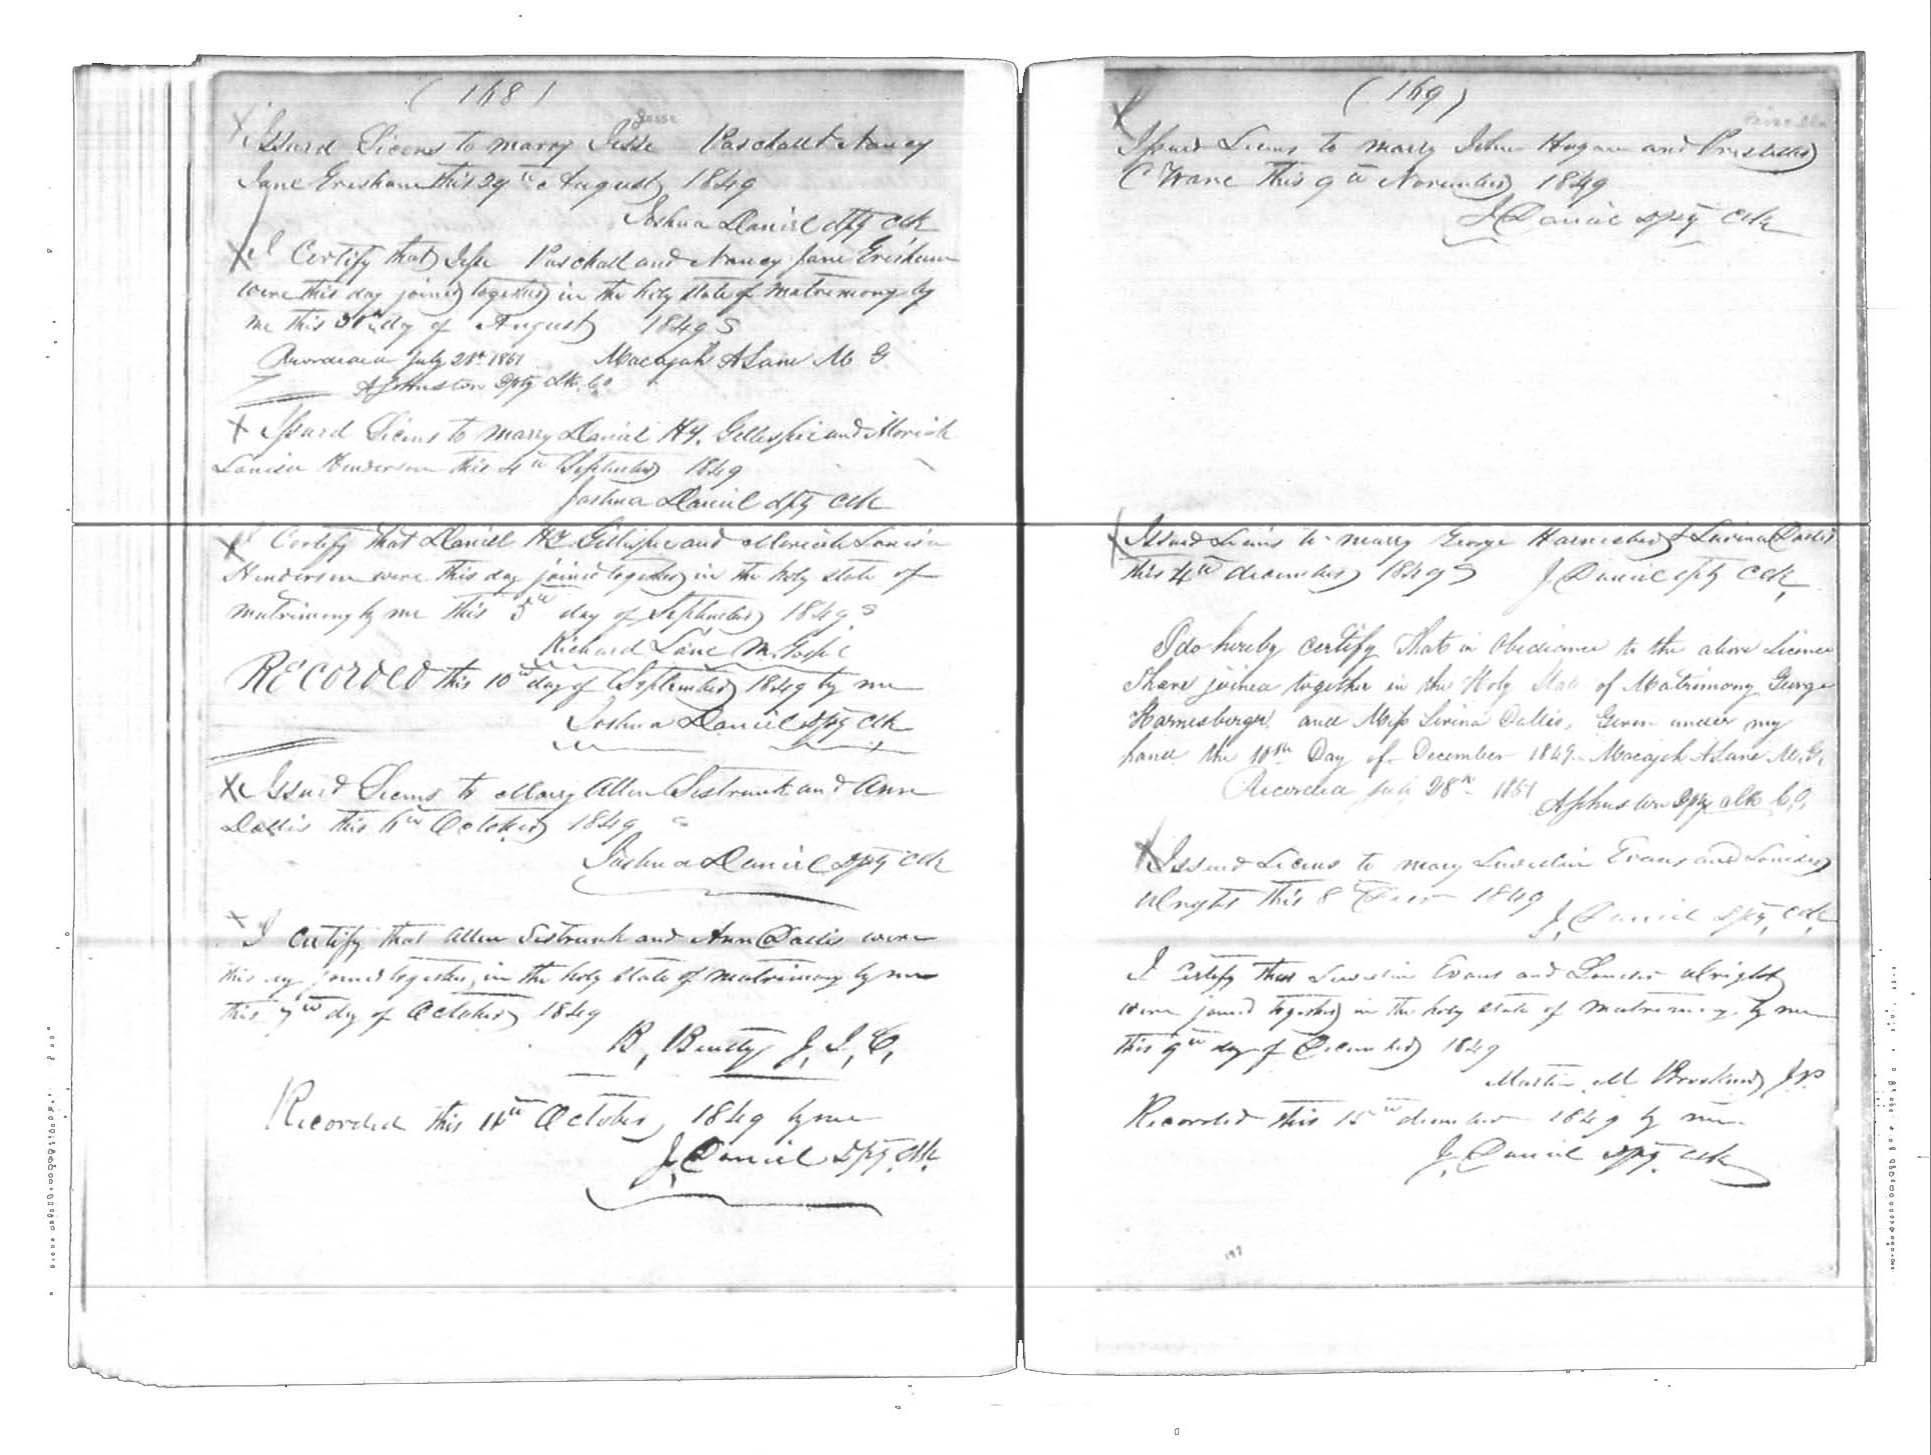 ( 168 )
Jesse
Issued Licens to marry Jesse Paschall & Nancy
Jane Grisham this 29th August 1849
Joshua Daniel dpty Clk
I Certify that Jesse Paschall and Nancy Jane Grisham
were this day joined together in the holy state of matrimony by
me this day of August 1849
Recorded July 28th 1851 Macajah A Lane M G
A Johnston Dpty Clk
Issued Licens to marry Daniel H Y. Gillespie and Moriah
Louisa Henderson this 4th September 1849
Joshua Daniel dpty Clk
I Certify that Daniel H Y Gillispie and Moriah Louisa
Henderson were this day joined together in the holy state of
matrimony by me this 5th day of September 1849
Richard Lane M. Gospl
RECORDED this 10th day of September 1849 by me
Joshua Daniel Dpty Clk
Issued Licens to Marry Allen Sistrunk and Ann
Dallis this 6th October 1849
Joshua Daniel Dpty Clk
I Certify that Allen Sistrunk and Ann Dallis were
this day joined together in the holy state of matrimony by me
this 7th day of October 1849
B, Beatty J, I, C,
Recorded this 14th October 1849 by me
J, Daniel Dpty. Clk.
( 169 )
Priscilla
Issued Licens to marry John Hogan and Priscilla
C Ware this 9th November 1849
J Daniel Dpty Clk
Issued Licens to marry George Harnesber & Lavina Dallis
this 4th december 1849 J Daniel dpty Clk,
I do hereby certify that in Obediance to the above Licence
I have joined together in the Holy State of Matrimony George
Harnesberger and Miss Livina Dallis, Given under my
hand the 10th Day of December 1849. Macajah A Lane M.G.
Recorded July 28th 1851 A Johnston Dpty Clk C,O,
Issued Licens to mary Evans and Louisa
Wright this 8th 1849
J, Daniel Dpty, Clk,
I Certify that Evans and Louisa Wright
were joined together in the holy state of matrimony by me
this 9th day of December 1849
Martin M J P
Recorded this 15th december 1849 by me
J, Daniel Dpty. Clk